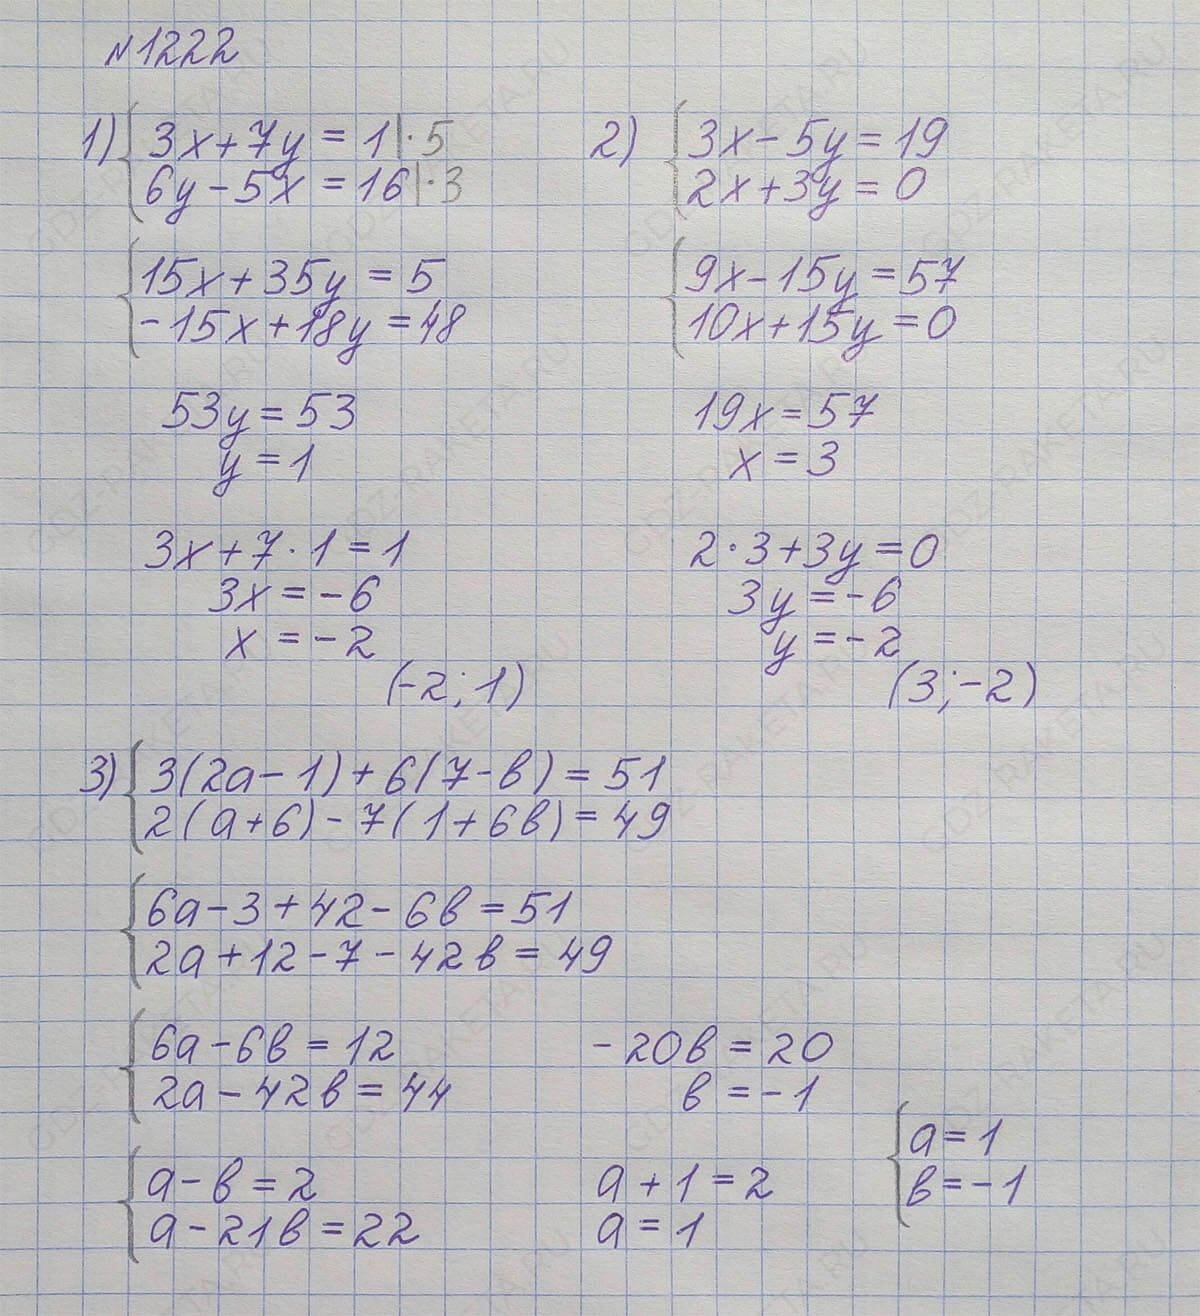 №1222
1) { 3x+7y = 1 | · 5
6y-5x = 16 | · 3
{ 15x+35y = 5
-15x+18y = 48
53y = 53
y = 1
3x+7 · 1 = 1
3x = -6
x = -2
(-2; 1)
2) { 3x-5y = 19
2x+3y = 0
{ 9x-15y = 57
10x+15y = 0
19x = 57
x = 3
2 · 3+3y = 0
3y = -6
y = -2
(3; -2)
3) { 3(2a-1)+6(7-b) = 51
2(a+6)-7(1+6b) = 49
{ 6a-3+42-6b = 51
2a+12-7-42b = 49
{ 6a-6b = 12
2a-42b = 44
{ a-b = 2
a-21b = 22
-20b = 20
b = -1
a+1 = 2
a = 1
{ a = 1
b = -1
GDZ-RAKETA.RU